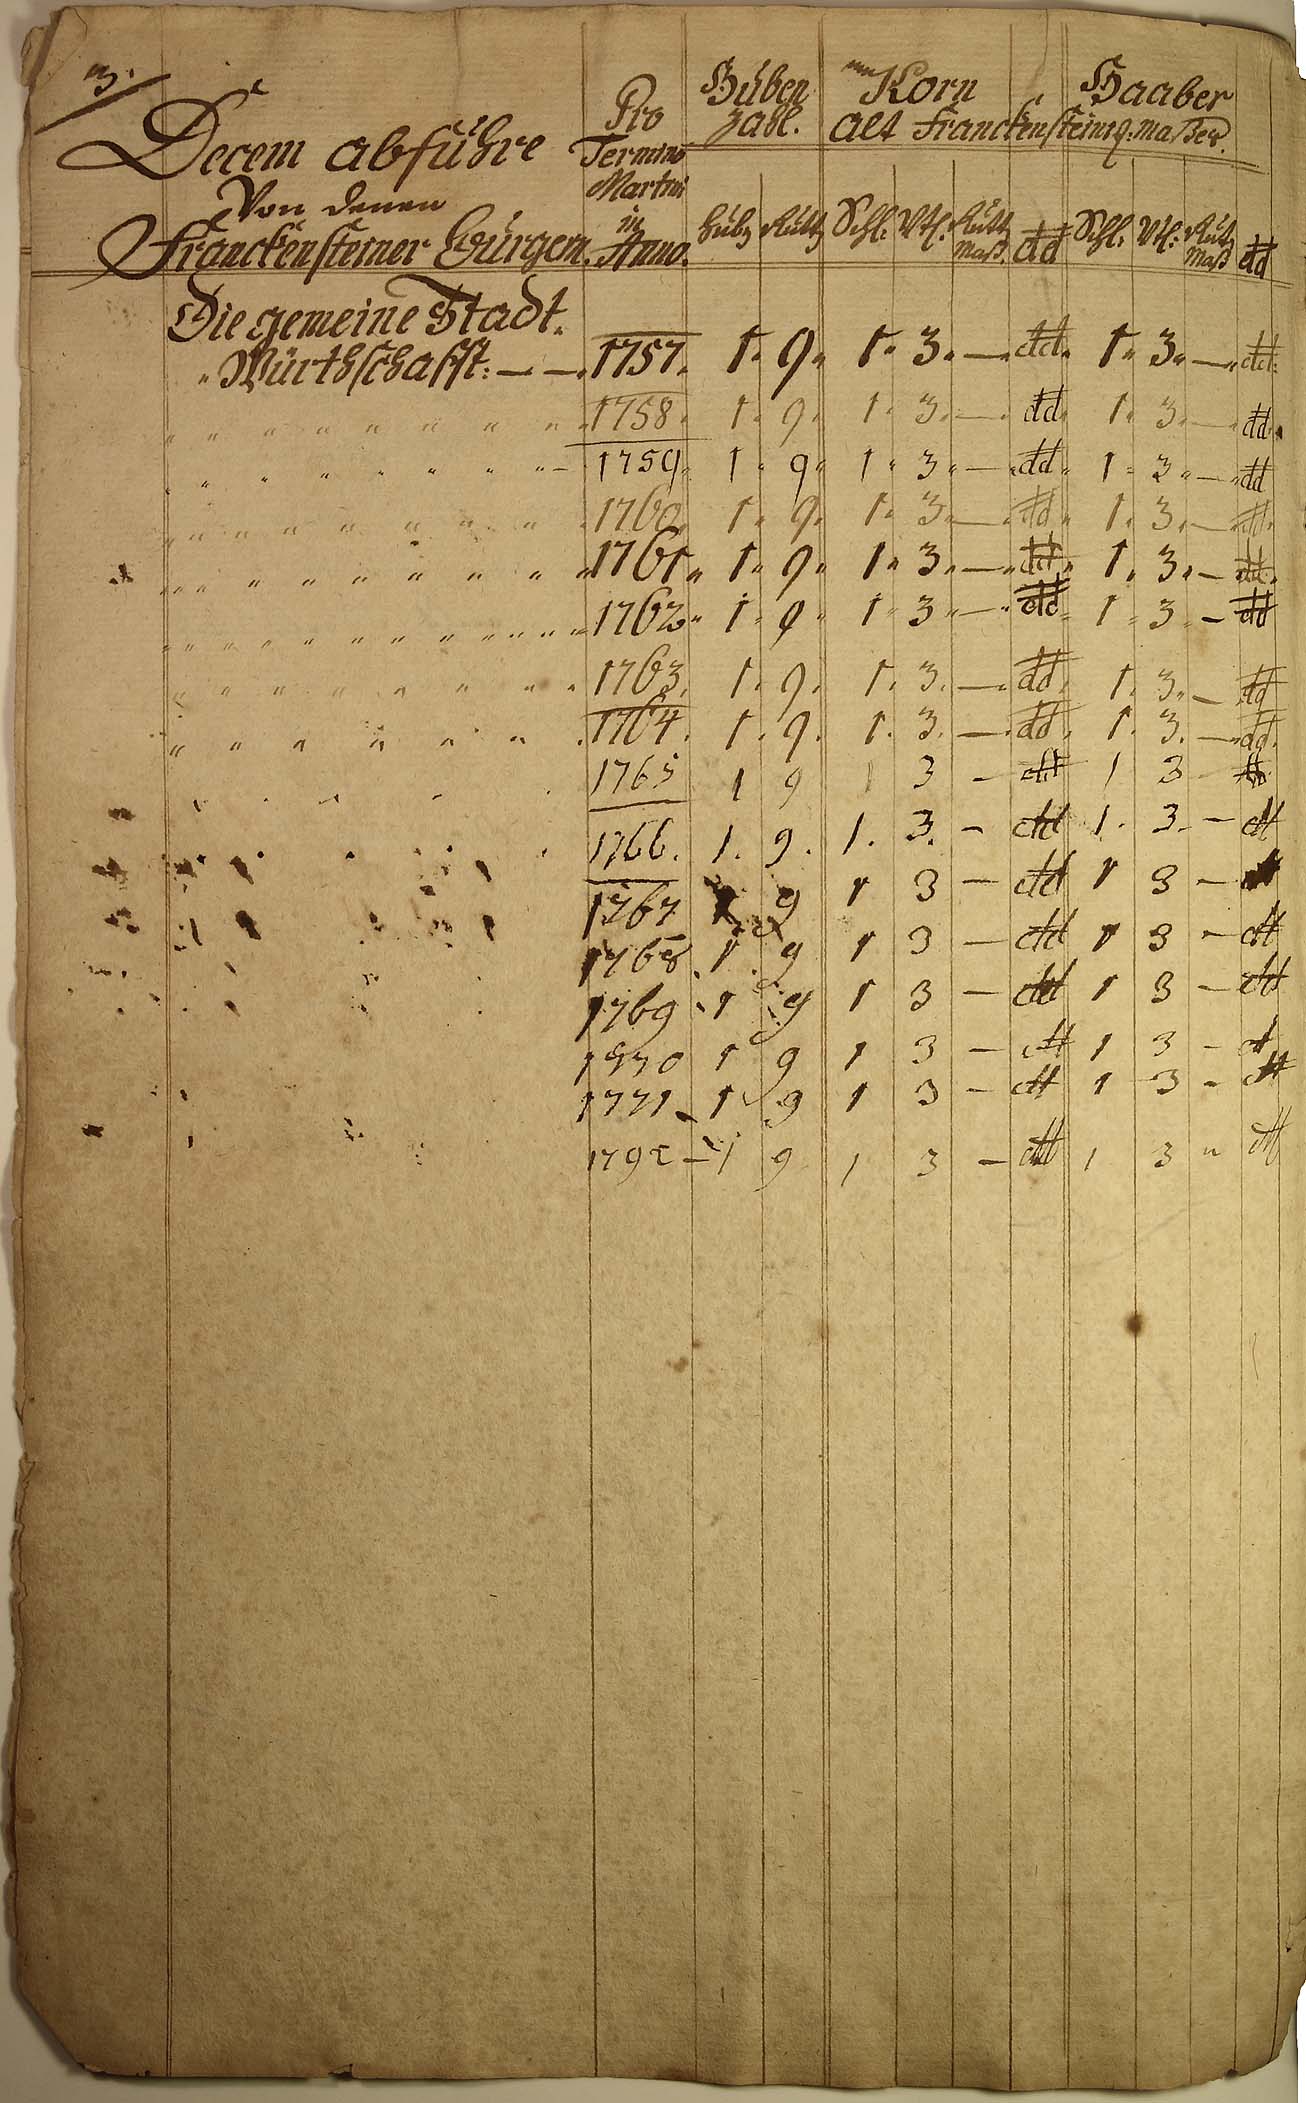 3.
Decem abführe
Von denen
Franckensteiner Bürgern.
Pro
Termino
Martini
in
Anno.
Huben
Zahl.
Korn
Haaber
alt Franckensteinig. Maßer.
Hub. Rutt. Schl: Vtl: Rutt Maß. dd Schl: Vtl: Rutt Maß dd
Die gemeine Stadt
Würthschafft: — — 1757. 1. 9. 1. 3. — dd. 1. 3. — dd.
1758. 1. 9. 1. 3. — dd. 1. 3. — dd.
1759. 1 " 9 " 1 " 3 " — dd " 1 " 3 " — dd
1760. 1. 9. 1. 3. — dd. 1. 3. — dd.
1761 " 1. 9. 1. 3. — dd. 1. 3. — dd.
1762 " 1 " 9 " 1 " 3 " — dd 1 " 3 — dd
1763. 1. 9. 1. 3. — dd. 1. 3. — dd
1764. 1. 9. 1. 3. — dd. 1. 3. — dd.
1765 1 9 1 3 — dd 1 3 — dd
1766. 1. 9. 1. 3. — dd 1. 3. — dd
1767 1 9 1 3 — dd 1 3 — dd
1768 1 9 1 3 — dd 1 3 — dd
1769 1 9 1 3 — dd 1 3 — dd
1770 1 9 1 3 — dd 1 3 — dd
1771 1 9 1 3 — dd 1 3 — dd
1772 — 1 9 1 3 — dd 1 3 " dd